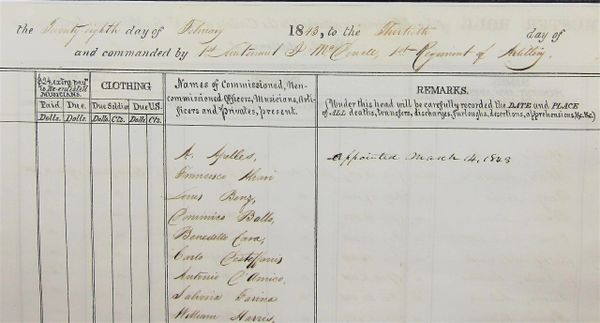 the Twenty eighth day of February 1843, to the Thirtieth day of
and commanded by 1st Lieutenant 1st Regiment of Artillery.
to Re-enlisted MUSICIANS.
Paid. Due.
Dolls. Dolls.
CLOTHING
Due Soldier Due U.S.
Dolls. Cts. Dolls. Cts.
Names of Commissioned, Non-
commissioned Officers, Musicians, Arti-
ficers and Privates, present.
REMARKS.
(Under this head will be carefully recorded the DATE and PLACE
of ALL deaths, transfers, discharges, furloughs, desertions, apprehensions, &c. &c.)
A.
appointed March 14, 1843
Francesco
Louis Benz,
Dominico Balla,
Benedetto Cava,
Carlo
Antonio D'Amico,
Salvoria Farina
William Harris,